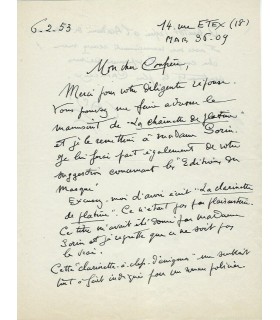 6-2-53
14 rue ETEX (18e)
MAR 35-09
Mon cher Confrère,
Merci pour votre diligente réponse.
Vous pouvez me faire adresser le
manuscrit de "La clarinette de platine"
et je le remettrai à madame Sorin.
Je lui ferai part également de votre
suggestion concernant les "Editions du
Masque"
Excusez-moi d'avoir écrit "La clarinette
de platine". Ce n'était pas
Ce titre m'avait été donné par madame
Sorin et je regrette que ce ne soit pas
le vrai.
Cette "clarinette à clefs d'énigme" me semblait
tout à fait indiquée pour un roman policier.